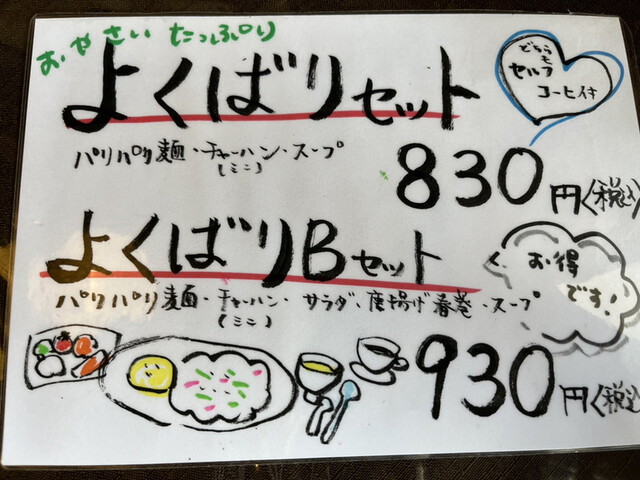 おやさい たっぷり
よくばりセット
どちらも
セルフ
コーヒー付
パリパリ麺・チャーハン・スープ
(ミニ)
830円(税込)
よくばりBセット
お得
です!
パリパリ麺・チャーハン・サラダ・唐揚げ春巻・スープ
(ミニ)
930円(税込)